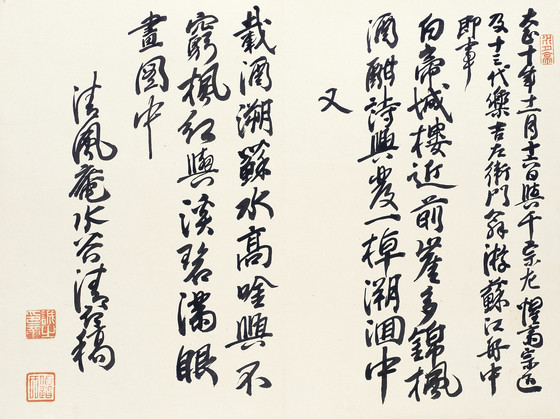 大正十年十一月十六日與千宗左惺斎宗匠
及十三代樂吉左衛門翁游蘇江舟中
即事
白帝城樓近前崖多錦楓
酒酣詩興發一棹溯洄中
又
載酒溯蘇水高吟興不
窮楓紅與溪碧滿眼
畫圖中
清風庵水谷清稿